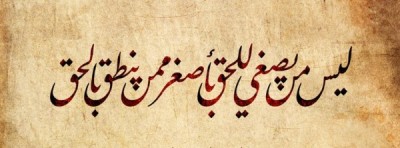 ليس من يصغي للحق بأصغر ممن ينطق بالحق